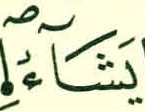 يَشَآءُۖ